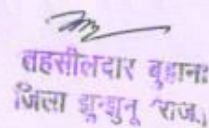 तहसीलदार बुहाना
जिला झुन्झुनू राज.